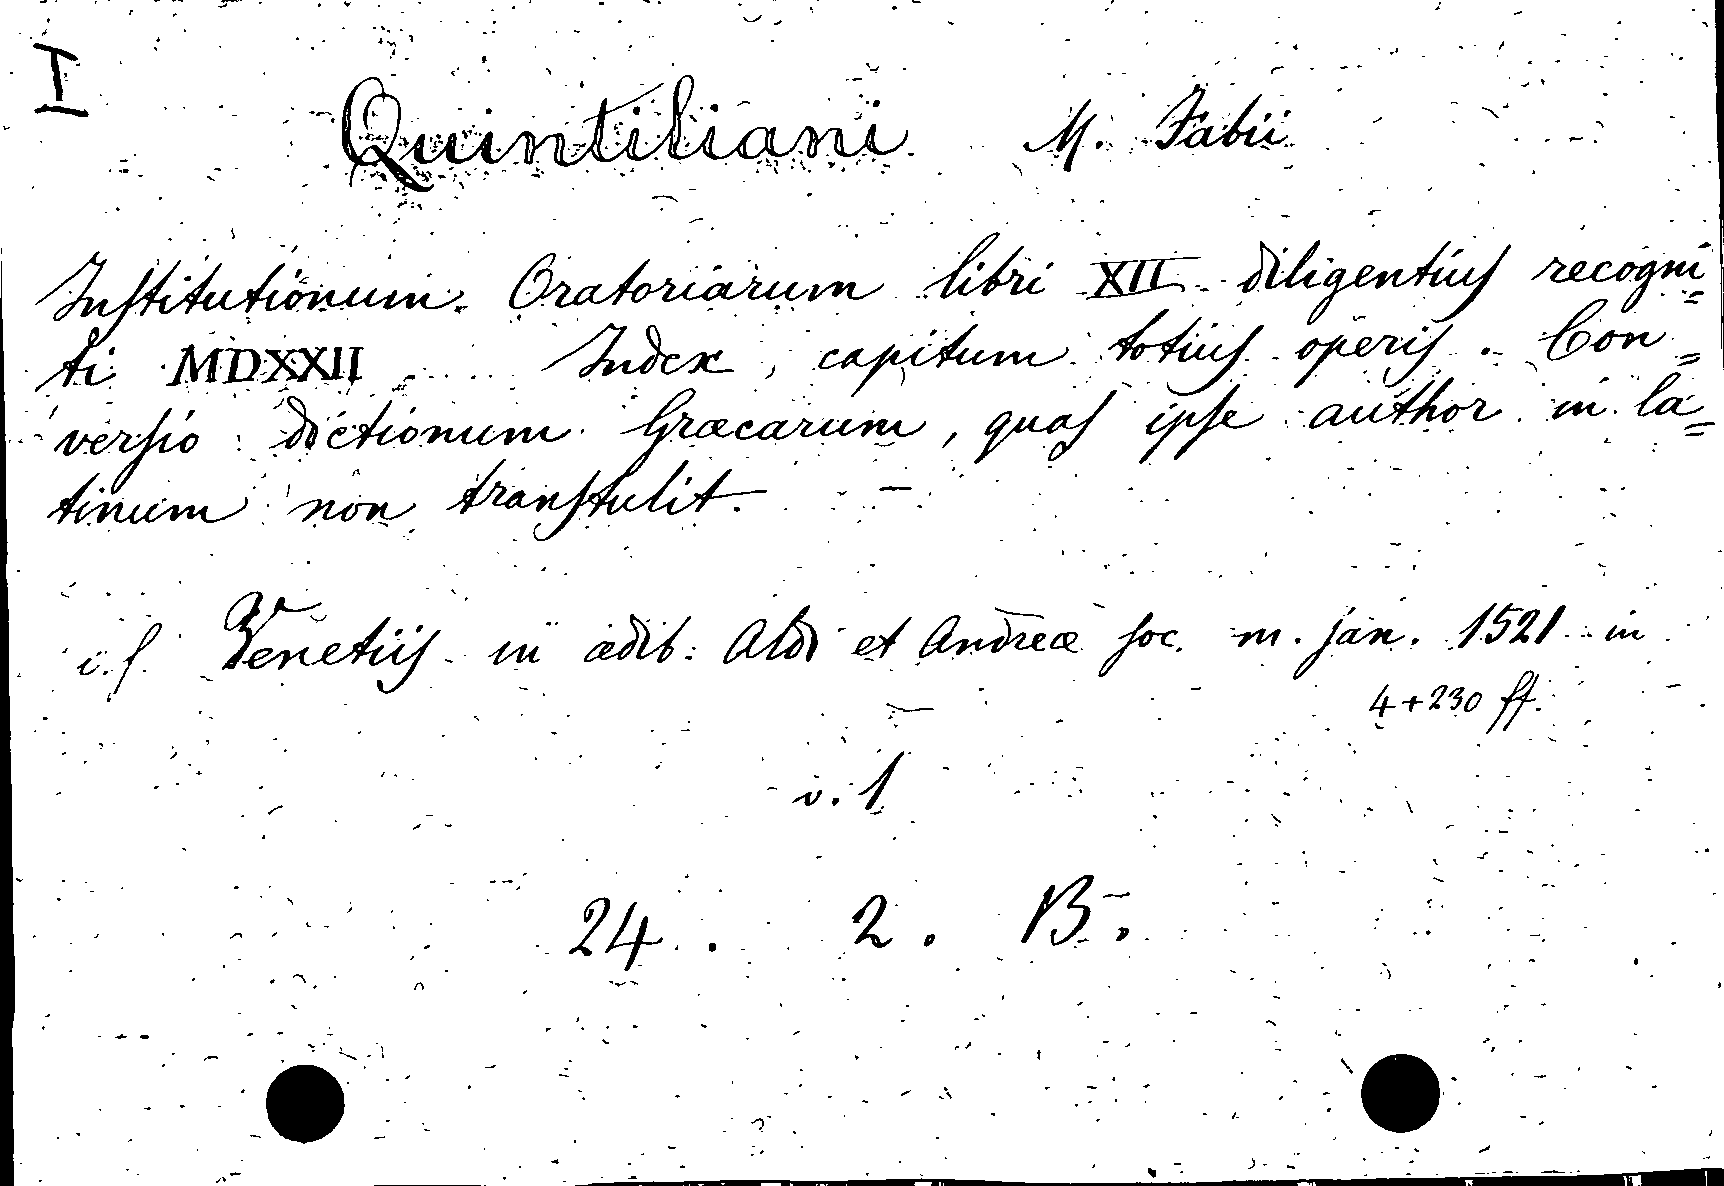 I
Quintiliani M. Fabii
Institutionum Oratoriarum libri XII diligentius recogni=
ti MDXXII Index, capitum totius operis. Con=
versio dictionum Græcarum, quas ipse author in la=
tinum non transtulit.
i. f. Venetiis in ædib: Aldi et Andreæ soc. m. jan. 1521 in
4+230 ff.
v. 1
24. 2. B.